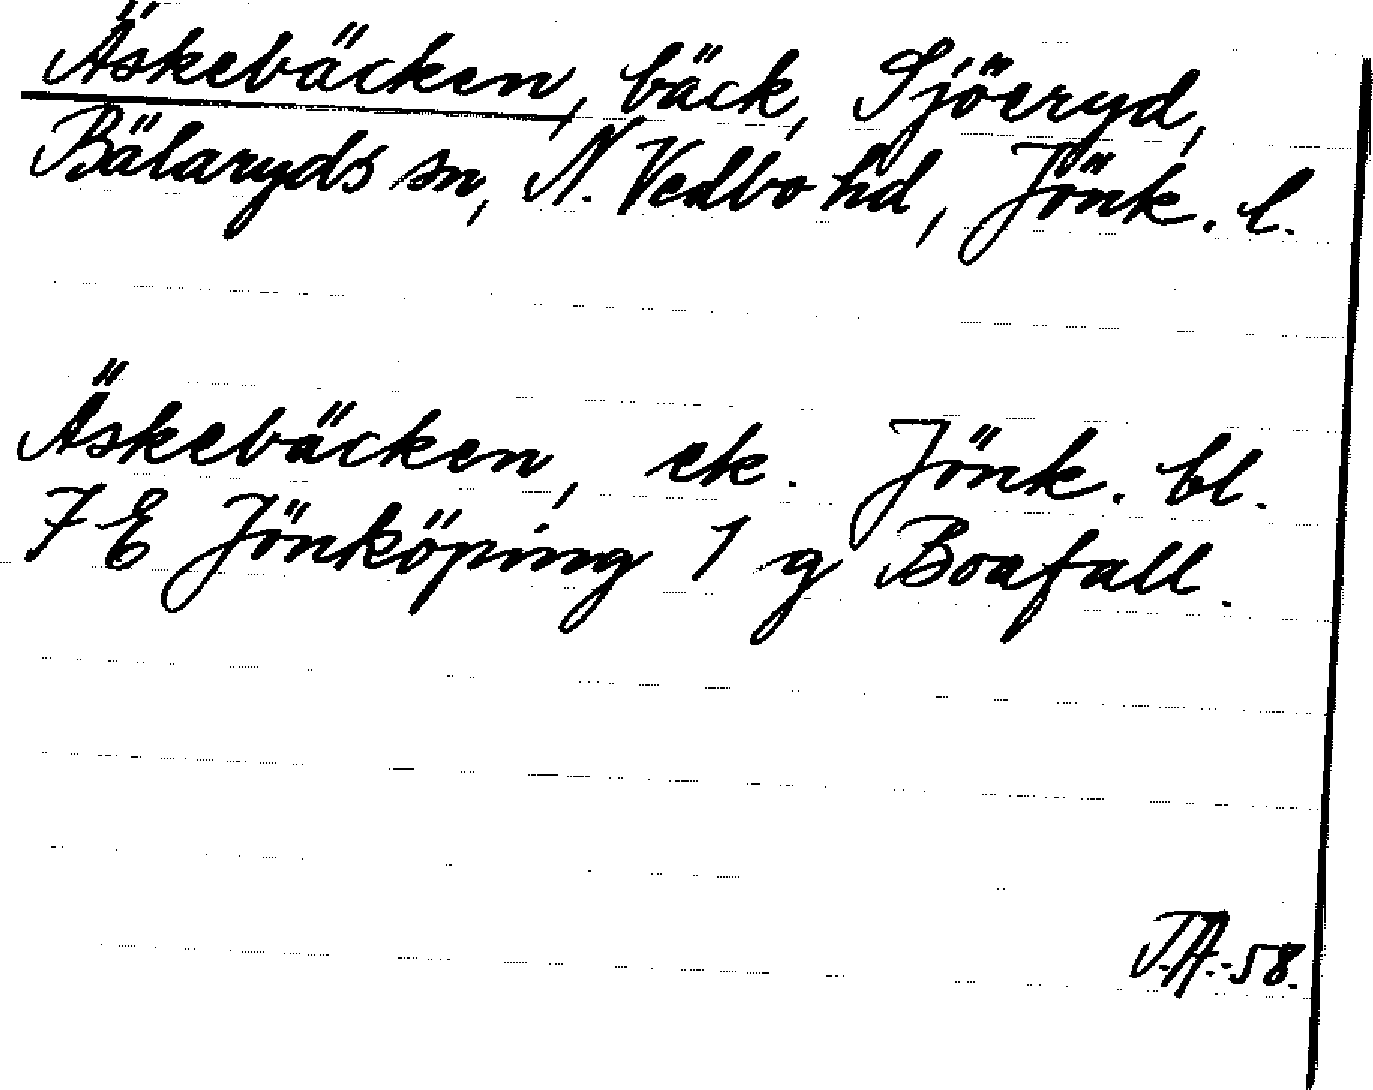 Äskebäcken, bäck, Sjöeryd,
Bälaryds sn, N. Vedbo hd, Jönk. l.
Äskebäcken, ek. Jönk. bl.
7 E Jönköping 1 g Boafall.
T.A.-58.